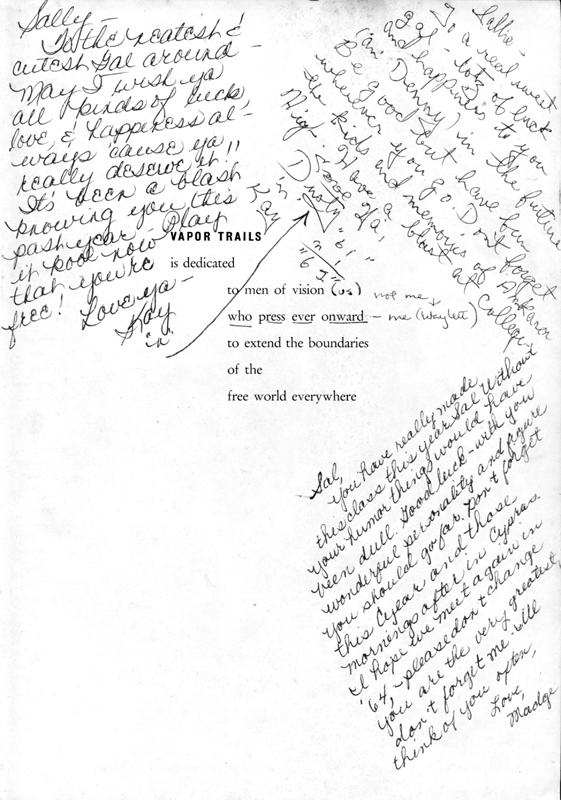 Sally -
To the neatest &
cutest Gal around -
May I wish ya
all kinds of luck
love, & happiness al-
ways 'cause ya
really deserve it!!
It's been a blast
knowing you this
past year - Play
it kool now
that you're
free!
Love ya -
Kay
"in"
Sallie -
To a real sweet
gal - lots of luck
and happiness to you
(an' Denny) in the future
Be good but have fun
wherever you go. Don't forget
the kids and memories of Ankara
High. Have a blast at College.
Love Ya,
Dusty
"61"
"in"
Kay
"62"
VAPOR TRAILS
is dedicated
to men of vision (us) not me
who press ever onward - me (way left)
to extend the boundaries
of the
free world everywhere
Sal,
you have really made
this class this year Sal. Without
your humor things would have
been dull. Good luck - with your
wonderful personality and figure
you should go far. Don't forget
this year and those
mornings after in Cyprus.
I hope we meet again in
'64, - please don't change
you are the very greatest,
don't forget me - will
think of you often,
Love,
Madge